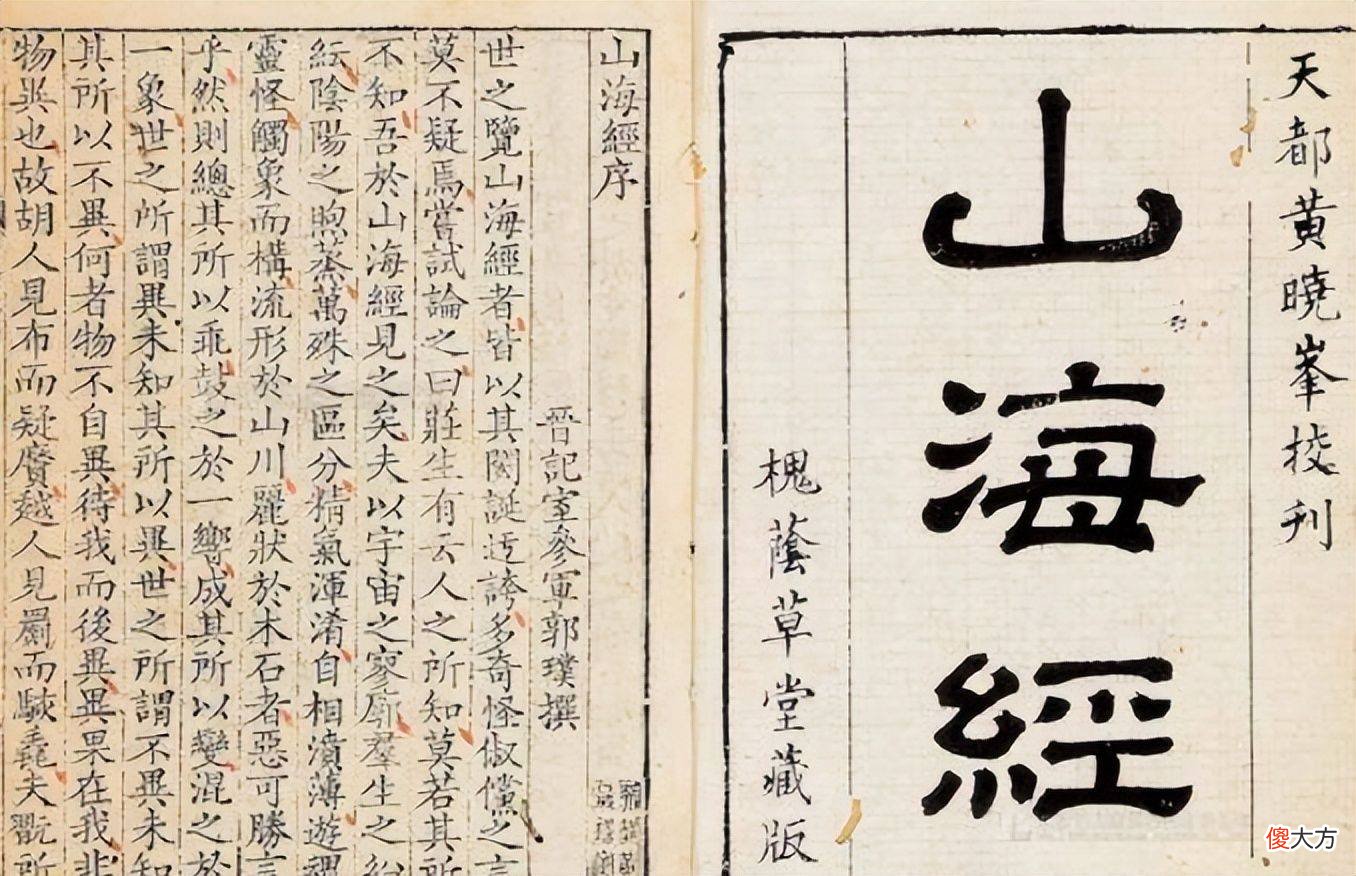 天都黃曉峯挍刊
山海經
槐蔭草堂藏版
山海經序
晉記室參軍郭璞撰
世之覽山海經者皆以其閎誕迂誇多奇怪俶儻之言
莫不疑焉嘗試論之曰莊生有云人之所知莫若其所
不知吾於山海經見之矣夫以宇宙之寥廓羣生之紛
紜陰陽之煦蒸萬殊之區分精氣渾淆自相濆薄遊魂
靈怪觸象而構流形於山川麗狀於木石者惡可勝言
乎然則總其所以乖鼓之於一響成其所以變混之於
一象世之所謂異未知其所以異世之所謂不異未知
其所以不異何者物不自異待我而後異異果在我非
物異也故胡人見布而疑黂越人見罽而駭毳夫翫所
傻大方